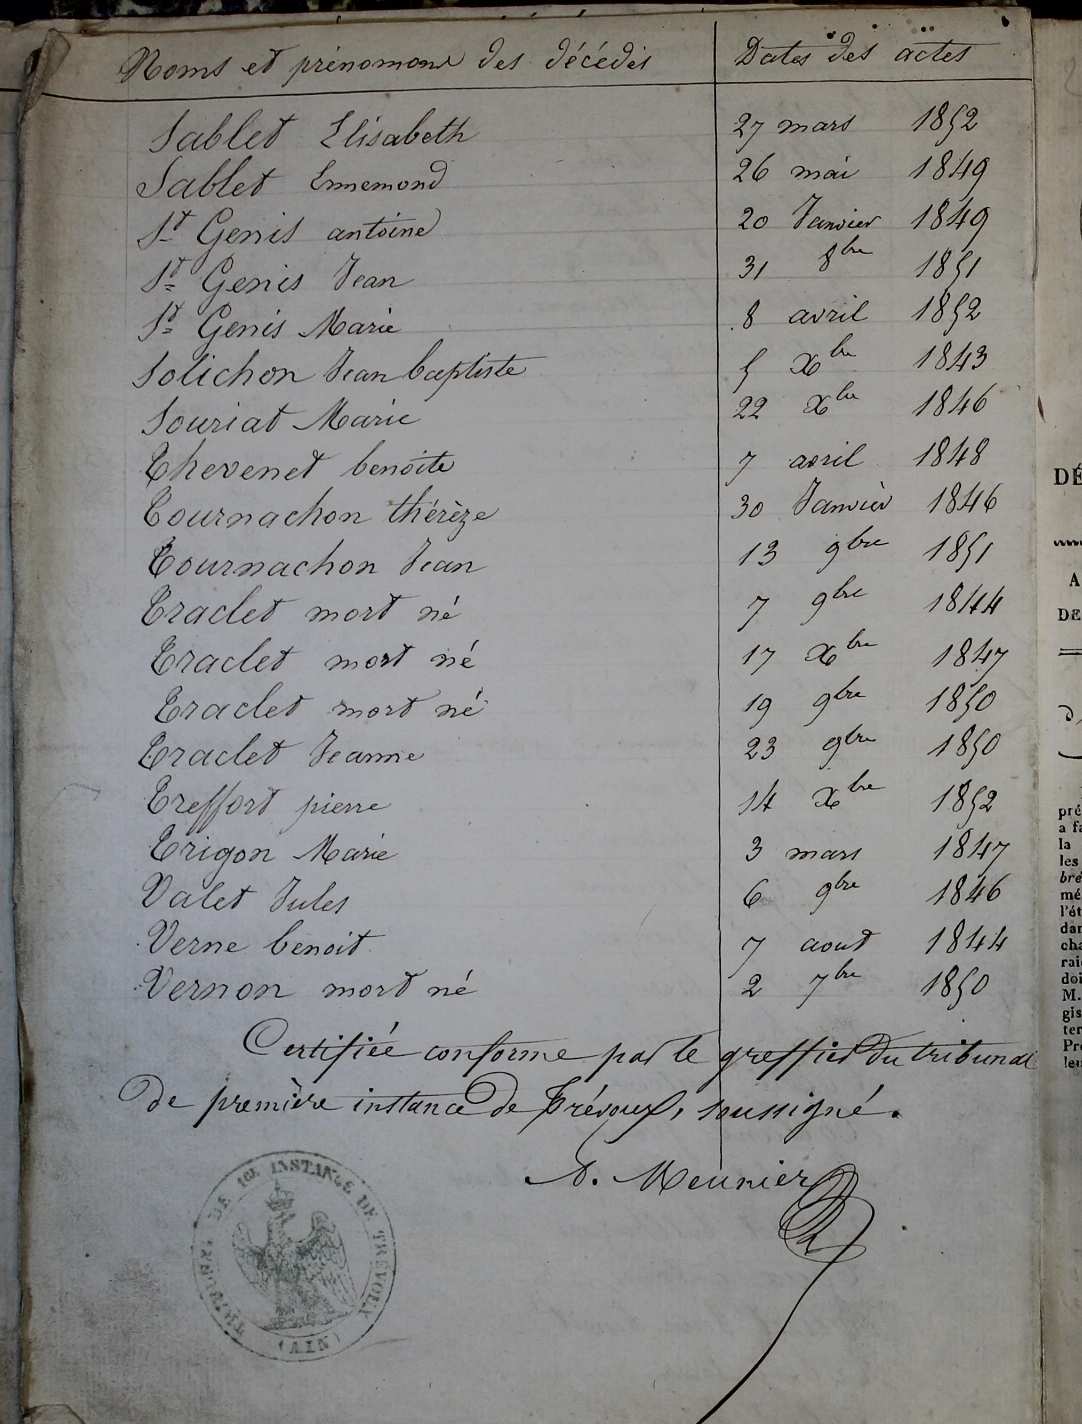 Noms et prénomons des décédés Dates des actes
Sablet Elisabeth 27 mars 1852
Sablet Ennemond 26 mai 1849
St Genis antoine 20 Janvier 1849
St Genis Jean 31 8bre 1851
St Genis Marie 8 avril 1852
Solichon Jean baptiste 5 Xbre 1843
Souriat Marie 22 Xbre 1846
Thevenet benoite 7 avril 1848
Tournachon thérèze 30 Janvier 1846
Tournachon Jean 13 9bre 1851
Traclet mort né 7 9bre 1844
Traclet mort né 17 Xbre 1847
Traclet mort né 19 9bre 1850
Traclet Jeanne 23 9bre 1850
Treffort pierre 14 Xbre 1852
Trigon Marie 3 mars 1847
Valet Jules 6 9bre 1846
Verne benoit 7 aout 1844
Vernon mort né 2 7bre 1850
Certifiée conforme par le greffier du tribunal
de première instance de Trévoux, soussigné.
A. Meunier
TRIBUNAL DE 1ERE INSTANCE DE TRÉVOUX
(AIN)
DÉ
A
DE
pré
a fa
la
les
bré
mé
l'ét
dan
cha
rai
doi
M.
gis
ter
Pr
leu